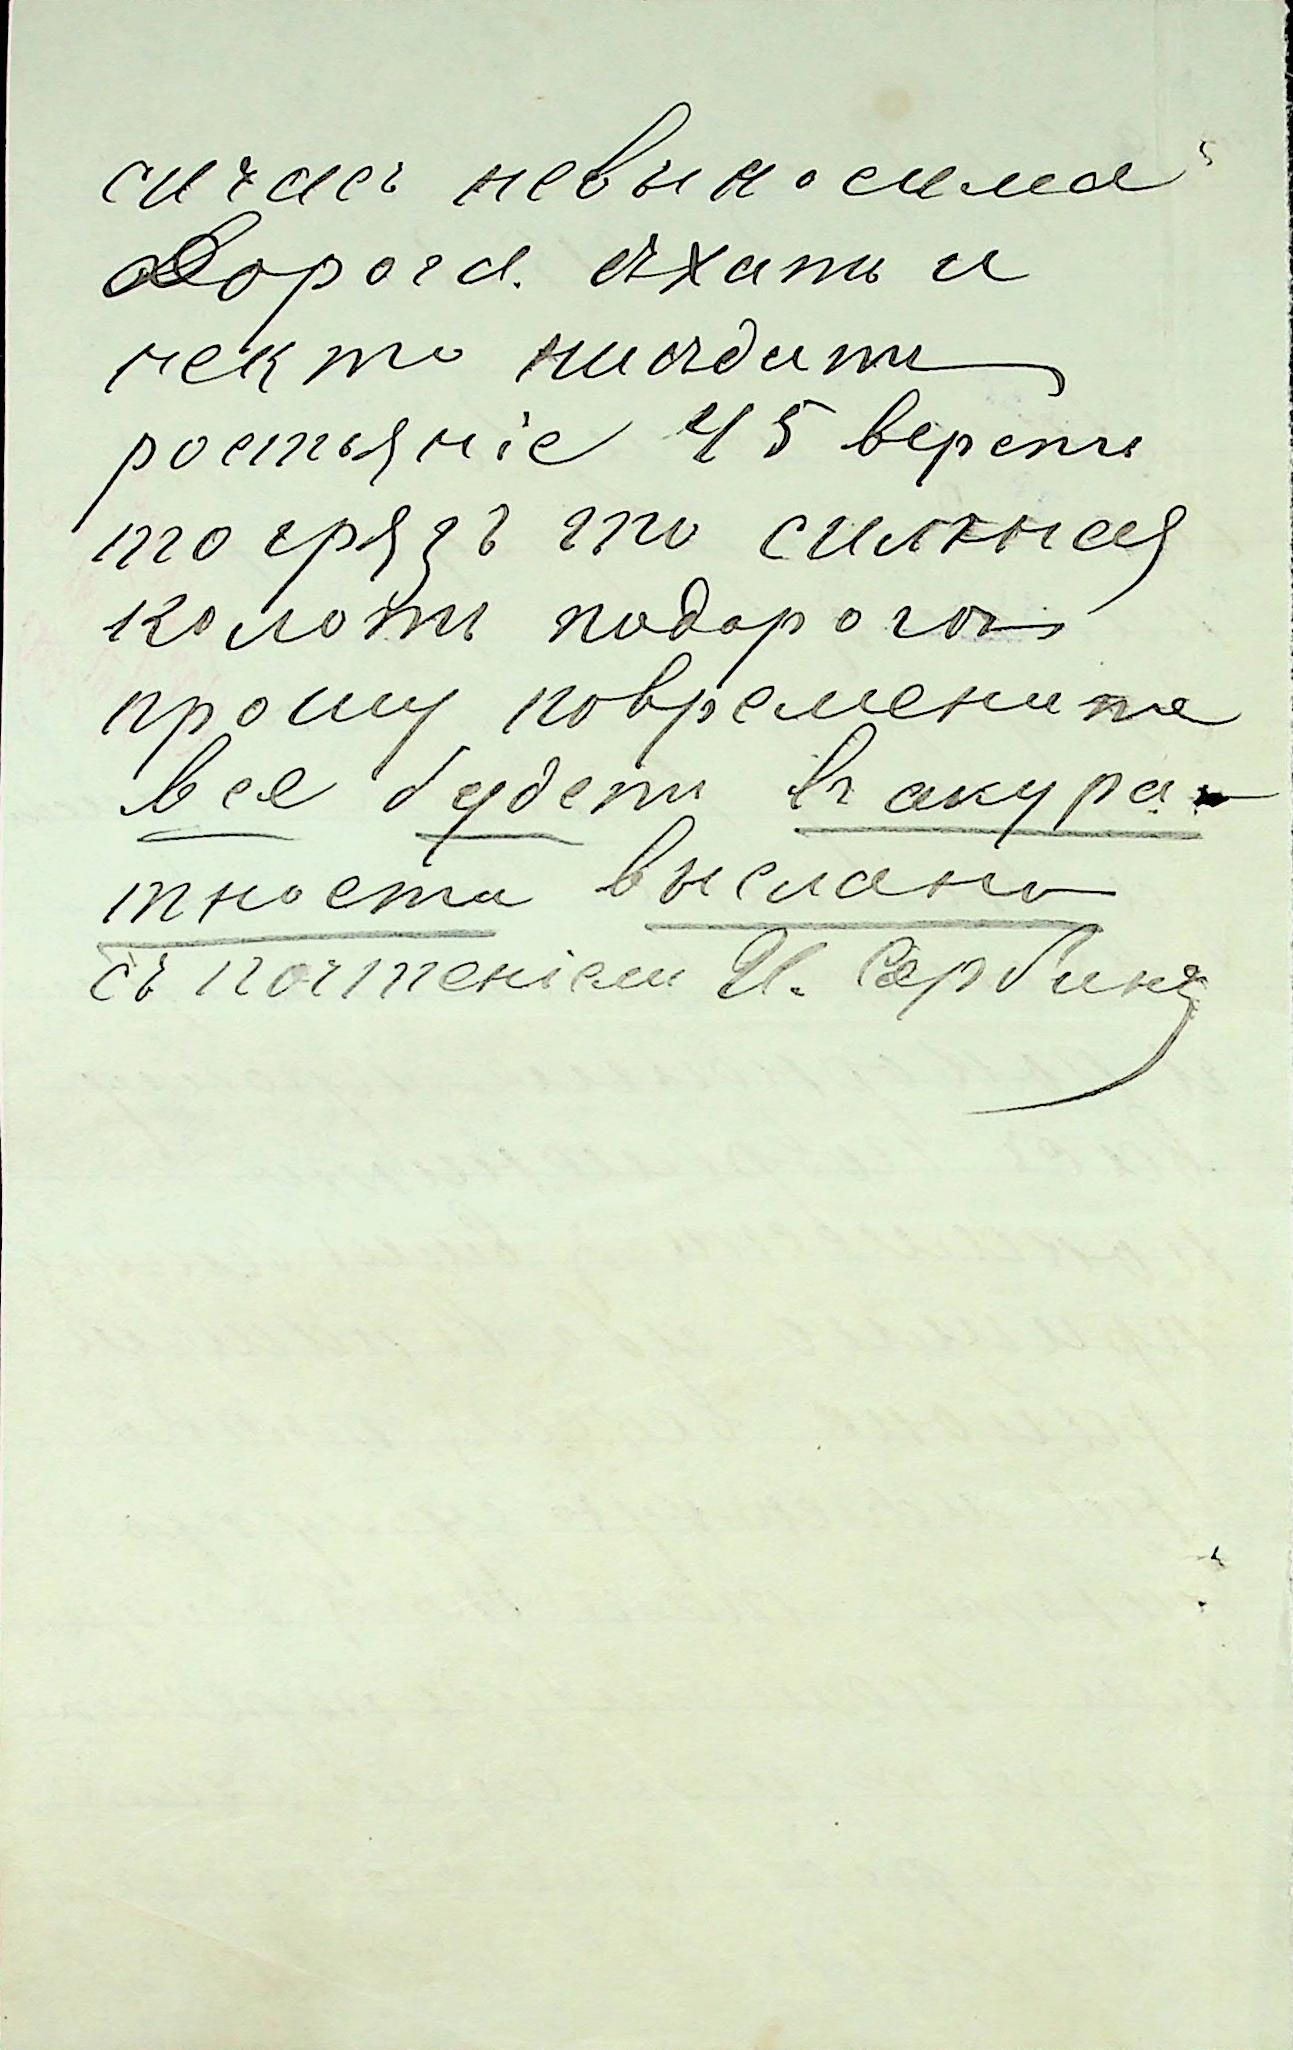 сичасъ невыносима
Дорога. ѣхать и
некто ниѣдитъ
ростьяніе 45 верстъ
то грязъ то силная
колоть подорогои
прошу повременитѣ
все будетъ въ акура-
тности выслано
съ почтеніемъ И. Сербинъ